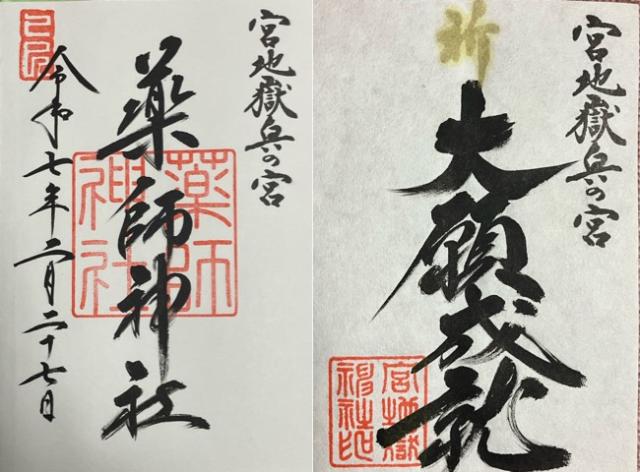 宮地嶽奥の宮
薬師神社
薬師
神社
令和七年二月二十七日
宮地嶽奥の宮
祈
大願成就
宮地嶽
神社印